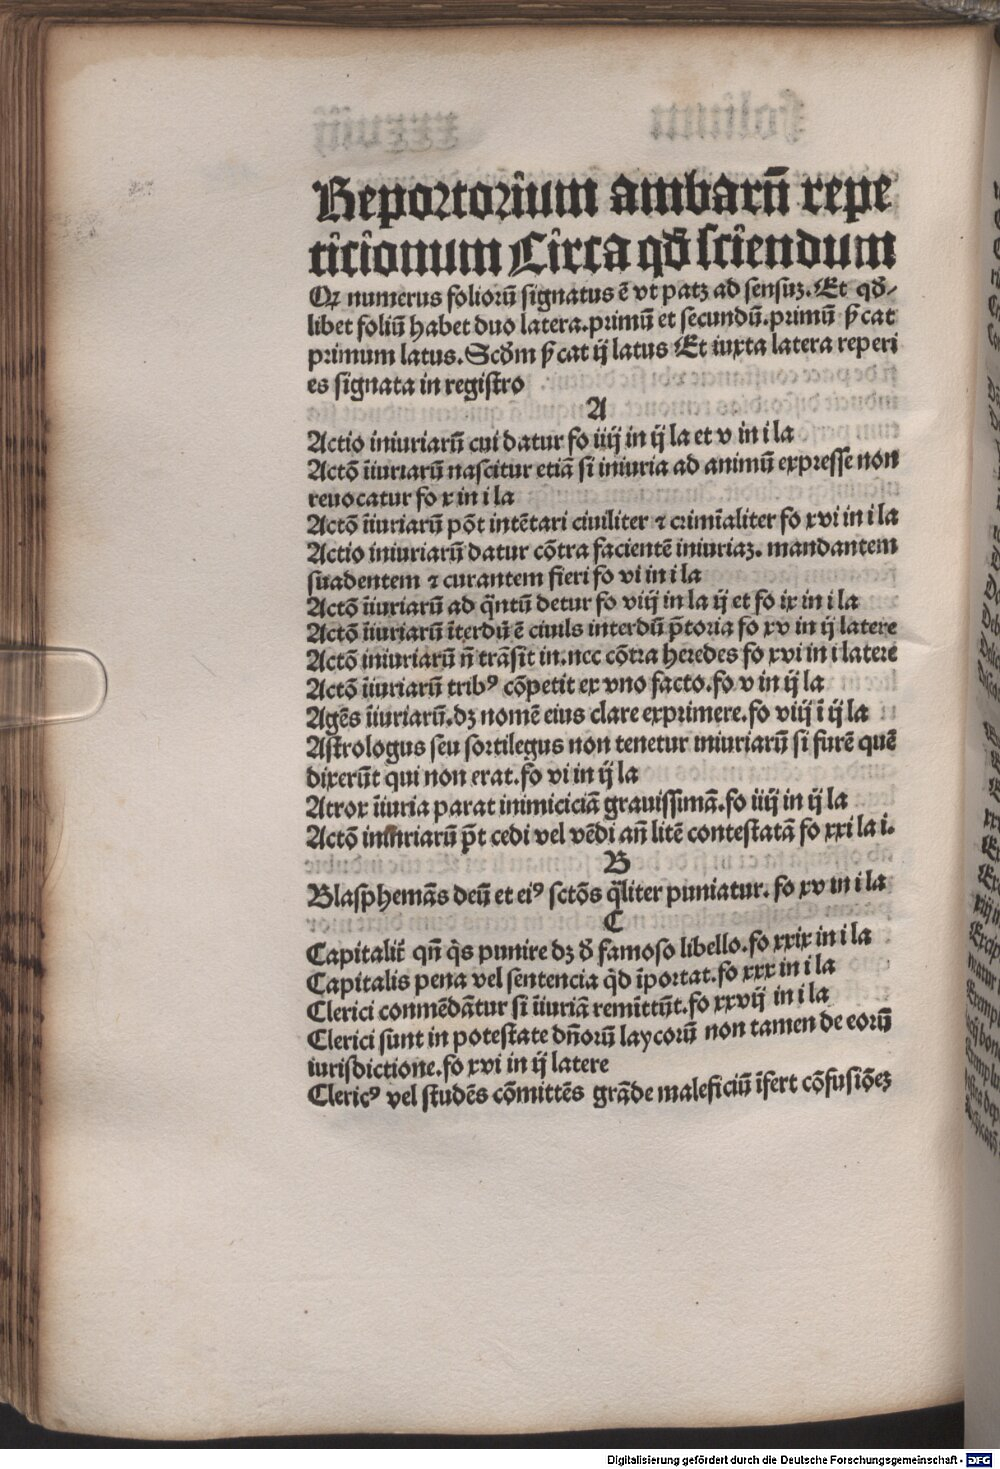 Reportorium ambarū repe
ticionum Circa qđ sciendum
Qꝛ numerus foliorū signatus ē vt patꝫ ad sensuꝫ. Et qđ-
libet foliū habet duo latera. primū et secundū. primū p̄cat
primum latus. Scđm p̄cat ij latus Et iuxta latera reperi
es signata in registro
A
Actio iniuriarū cui datur fo iiij in ij la et v in i la
Actō īiuriarū nascitur etiā si iniuria ad animū expresse non
reuocatur fo x in i la
Actō īiuriarū pōt intētari ciuiliter ⁊ crimīaliter fo xvi in i la
Actio iniuriarū datur cōtra facientē iniuriaꝫ. mandantem
suadentem ⁊ curantem fieri fo vi in i la
Actō īiuriarū ad q̄ntū detur fo viij in la ij et fo ix in i la
Actō īiuriarū īterdū ē ciuils interdū p̄toria fo xv in ij latere
Actō iniuriarū n̄ trāsit in. ncc cōtra heredes fo xvi in i latere
Actō īiuriarū tribꝰ cōpetit ex vno facto. fo v in ij la
Agēs īiuriarū. dꝫ nomē eius clare exprimere. fo viij ī ij la
Astrologus seu sortilegus non tenetur iniuriarū si furē quē
dixerūt qui non erat. fo vi in ij la
Atrox īiuria parat inimiciciā grauissimā. fo iiij in ij la
Actō iniuriarū p̄t cedi vel vēdi an̄ litē contestatā fo xxi la i.
B
Blasphemās deū et eiꝰ sctōs q̄liter puniatur. fo xv in i la
C
Capitalit̄ qn̄ q̄s punire dꝫ đ famoso libello. fo xxix in i la
Capitalis pena vel sentencia q̄d īportat. fo xxx in i la
Clerici conmēdātur si īiuriā remittūt. fo xxvij in i la
Clerici sunt in potestate dn̄orū laycorū non tamen de eorū
iurisdictione. fo xvi in ij latere
Clericꝰ vel studēs cōmittēs grāde maleficiū īfert cōfusiōeꝫ
Digitalisierung gefördert durch die Deutsche Forschungsgemeinschaft - DFG